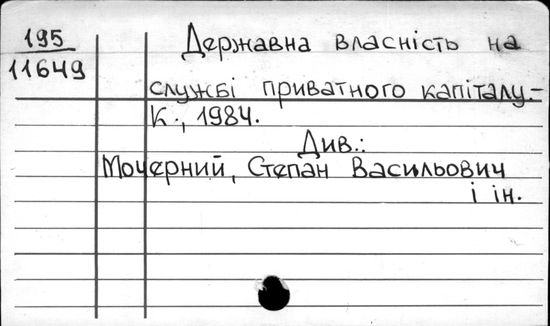 195
11649
Державна власність на
службі приватного капіталу.-
К., 1984.
Див.:
Мочерний, Степан Васильович
і ін.